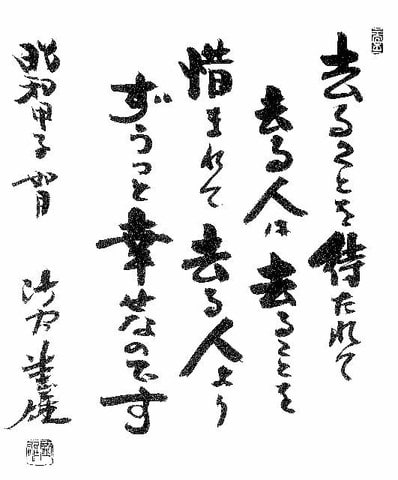 去ることを待たれて
去る人は去ることを
惜まれて去る人より
ずうっと幸せなのです
昭和甲子 如月